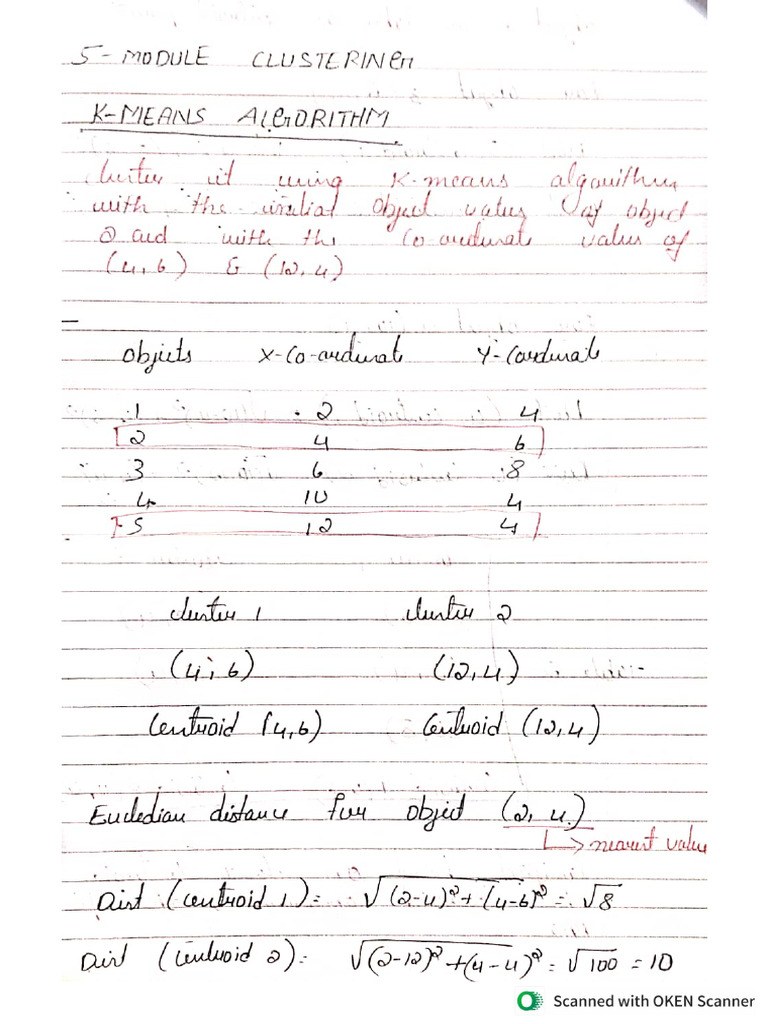 5-MODULE CLUSTERING
K-MEANS ALGORITHM
Cluster it using K-means algorithm
with the initial object value of object
2 and with the Co-ordinate value of
(4,6) & (12,4)
Objects X-Co-ordinate Y-Cordinate
1 2 4
2 4 6
3 6 8
4 10 4
5 12 4
Cluster 1 Cluster 2
(4,6) (12,4)
Centroid (4,6) Centroid (12,4)
Eucledian distance for object (2,4)
↳ nearest value
Dist (centroid 1) = √(2-4)²+(4-6)² = √8
Dist (centroid 2) = √(2-12)²+(4-4)² = √100 = 10
Scanned with OKEN Scanner